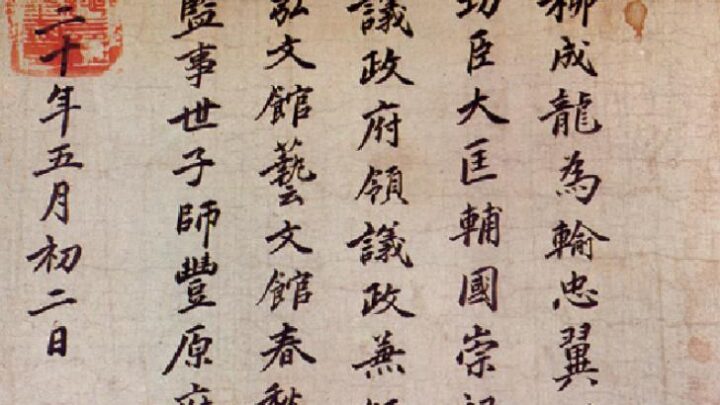 柳成龍為輸忠翼
功臣大匡輔國崇
議政府領議政兼
弘文館藝文館春秋
監事世子師豐原府
二十年五月初二日